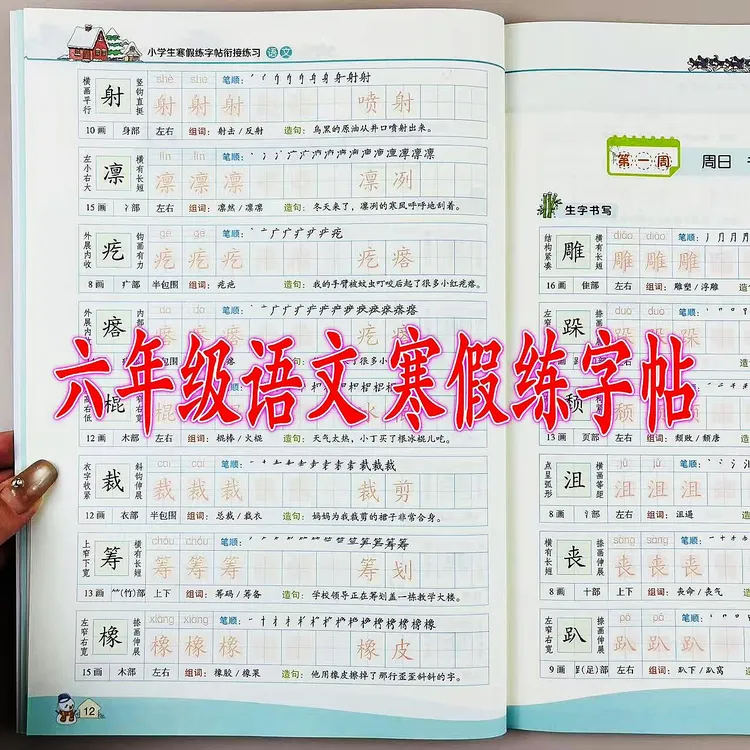 小学生寒假练字帖衔接练习 语文
横画平行 射 竖钩直挺 shè shè 笔顺:
射 射 射 喷 射
10 画 身部 左右 组词:射击/反射 造句:乌黑的原油从井口喷射出来。
左小右大 凛 横有长短 lǐn lǐn 笔顺:
凛 凛 凛 凛 冽
15 画 冫部 左右 组词:凛然/凛凛 造句:冬天来了,凛冽的寒风呼呼地刮着。
外展内收 疙 钩画有力 gē gē 笔顺:
疙 疙 疙 疙 瘩
8 画 疒部 半包围 组词:疙疙 造句:我的手臂被蚊虫叮咬后起了很多小红疙瘩。
外展内收 瘩 内部 da da 笔顺:
疙 瘩
六年级语文寒假练字帖
棍
12 画 木部 左右 组词:棍棒/火棍 造句:天气太热,小丁买了根冰棍儿吃。
衣字收紧 裁 斜钩伸展 cái cái 笔顺:
裁 裁 裁 裁 剪
12 画 衣部 半包围 组词:总裁/裁衣 造句:妈妈为我裁剪的裙子非常合身。
上窄下宽 筹 横有长短 chóu chóu 笔顺:
筹 筹 筹 筹 划
13 画 ⺮(竹)部 上下 组词:筹码/筹备 造句:学校领导正在筹划盖一栋教学大楼。
左窄右宽 橡 撇画伸展 xiàng xiàng 笔顺:
橡 橡 橡 橡 皮
15 画 木部 左右 组词:橡胶/橡果 造句:他用橡皮擦掉了那行歪歪斜斜的字。
12
第一周 周日
生字书写
结构紧凑 雕 横有长短 diāo diāo 笔顺:
雕 雕 雕
16 画 隹部 左右 组词:雕塑/浮雕
跺
颓
13 画 页部 左右 组词:颓败/颓唐
点呈弧形 沮 横画等距 jǔ jǔ 笔顺:
沮 沮 沮
8 画 氵部 左右 组词:沮遏
横有长短 丧 捺画伸展 sàng sàng 笔顺:
丧 丧 丧
8 画 十部 上下 组词:丧命/丧气
左窄右宽 趴 捺画伸展 pā pā 笔顺:
趴 趴 趴
9 画 𧾷(足)部 左右 组词:趴下/趴窝